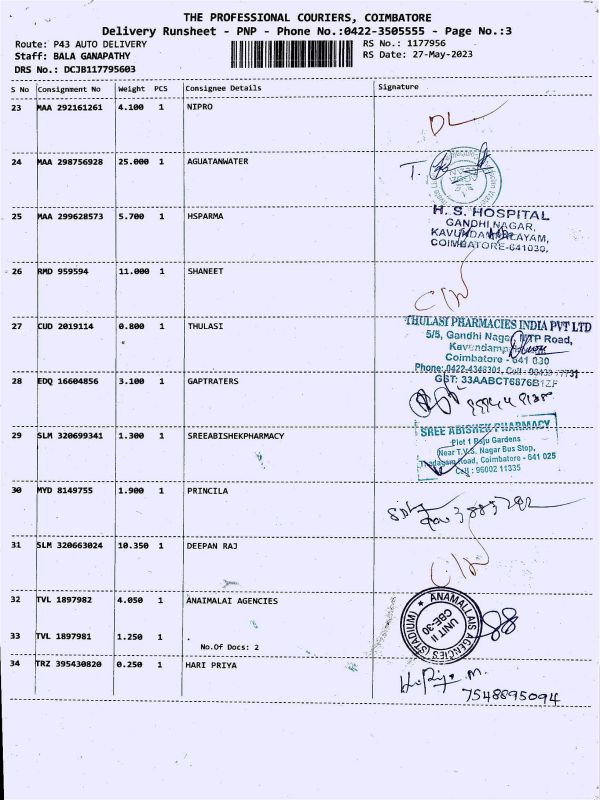 THE PROFESSIONAL COURIERS, COIMBATORE
Delivery Runsheet - PNP - Phone No.:0422-3505555 - Page No.:3
Route: P43 AUTO DELIVERY RS No.: 1177956
Staff: BALA GANAPATHY RS Date: 27-May-2023
DRS No.: DCJB117795603
S No Consignment No Weight PCS Consignee Details Signature
23 MAA 292161261 4.100 1 NIPRO
DL
24 MAA 298756928 25.000 1 AGUATANWATER
T.
25 MAA 299628573 5.700 1 HSPARMA
H. S. HOSPITAL
GANDHI NAGAR,
KAVUNDAMPALAYAM,
COIMBATORE-641030.
26 RMD 959594 11.000 1 SHANEET
27 CUD 2019114 0.800 1 THULASI
THULASI PHARMACIES INDIA PVT LTD
5/5, Gandhi Nagar, MTP Road,
Kavundamp
Coimbatore - 641 030
Phone: 0422-4346301, Cell :
GST: 33AABCT6876B1ZF
28 EDQ 16604856 3.100 1 GAPTRATERS
29 SLM 320699341 1.300 1 SREEABISHEKPHARMACY
SREE ABISHEK PHARMACY
Plot 1 Raju Gardens
Near T.V.S. Nagar Bus Stop,
Thadagam Road, Coimbatore - 641 025
Cell : 96002 11335
30 MYD 8149755 1.900 1 PRINCILA
31 SLM 320663024 10.350 1 DEEPAN RAJ
32 TVL 1897982 4.050 1 ANAIMALAI AGENCIES
ANAMALLAIS AGENCIES (STADIUM)
UNIT II
CBE-30
33 TVL 1897981 1.250 1
No.Of Docs: 2
34 TRZ 395430820 0.250 1 HARI PRIYA
7548895094